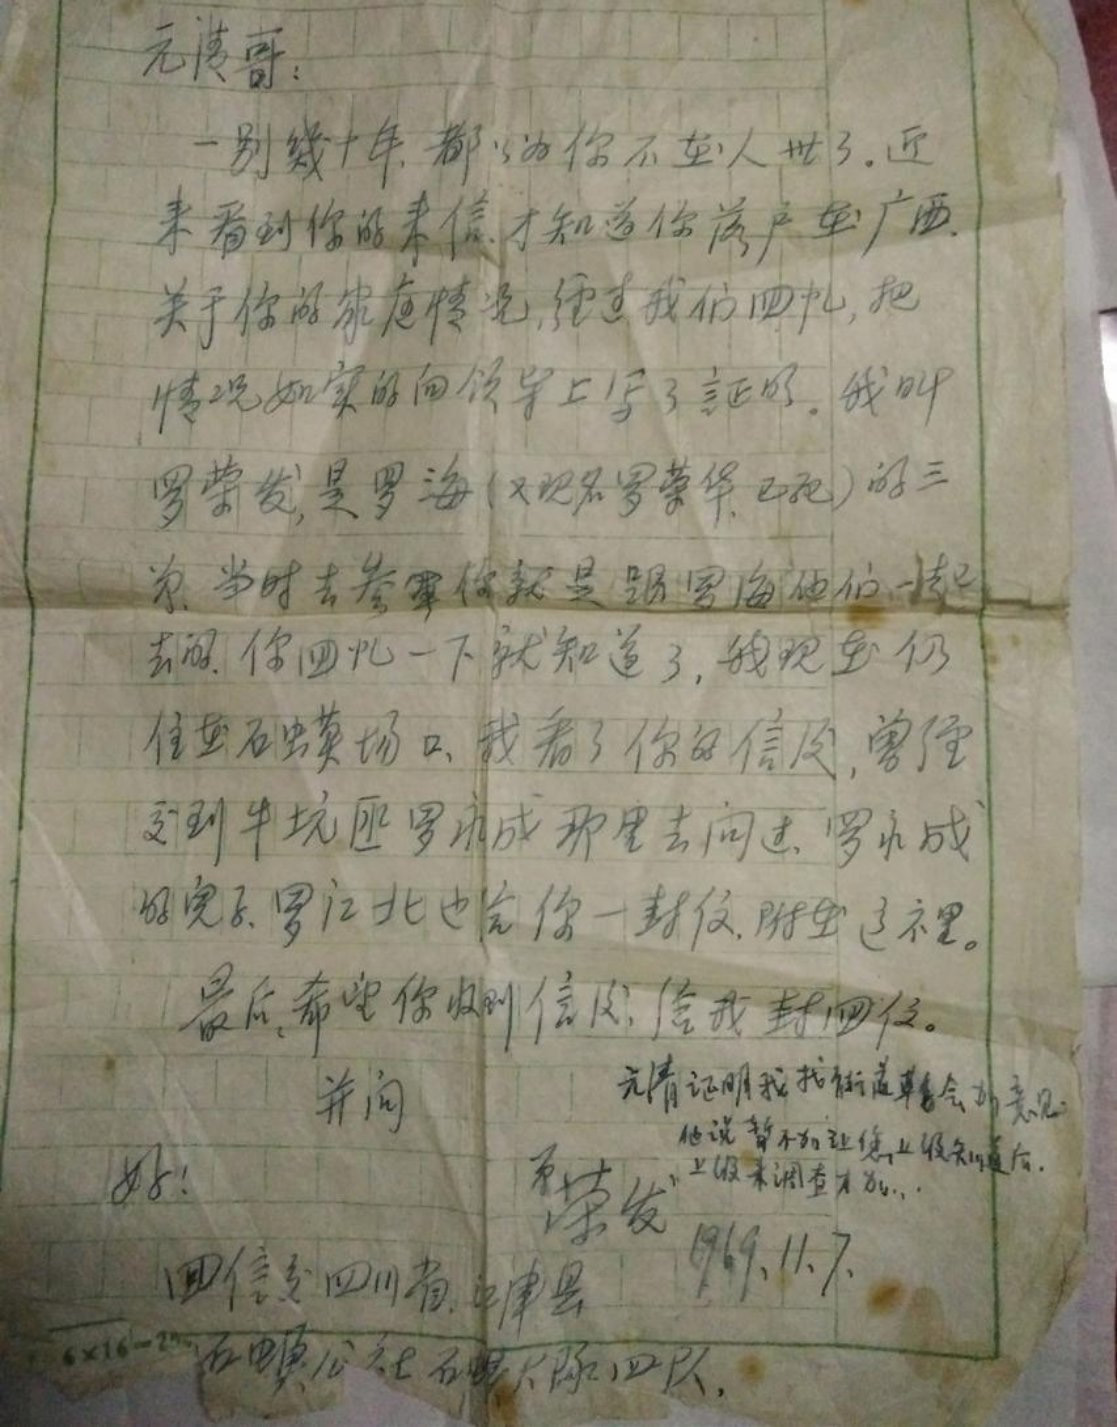 元清哥：
一别幾十年，都以为你不在人世了。近
来看到你的来信，才知道你落户在广西，
关于你的家庭情况，经过我们回忆，把
情况如实的向领导上写了証明。我叫
罗荣发，是罗海（又现名罗荣华，已死）的三
弟，当时去参軍你就是跟罗海他们一起
去的，你回忆一下就知道了，我现在仍
住在石蟆场口，我看了你的信后，曾经
到牛坑匝罗永成那里去问过，罗永成
的児子，罗江北也给你一封信，附在这裡。
最后，希望你收到信后，给我封回信。
并问
好！
元清证明我找街道革委会的意见
他说暂不办让您上级知道后，
上级来调查才办...
弟荣发
1969.11.7.
回信交四川省江津县
石蟆公社石蟆大隊四队.
6×16=2